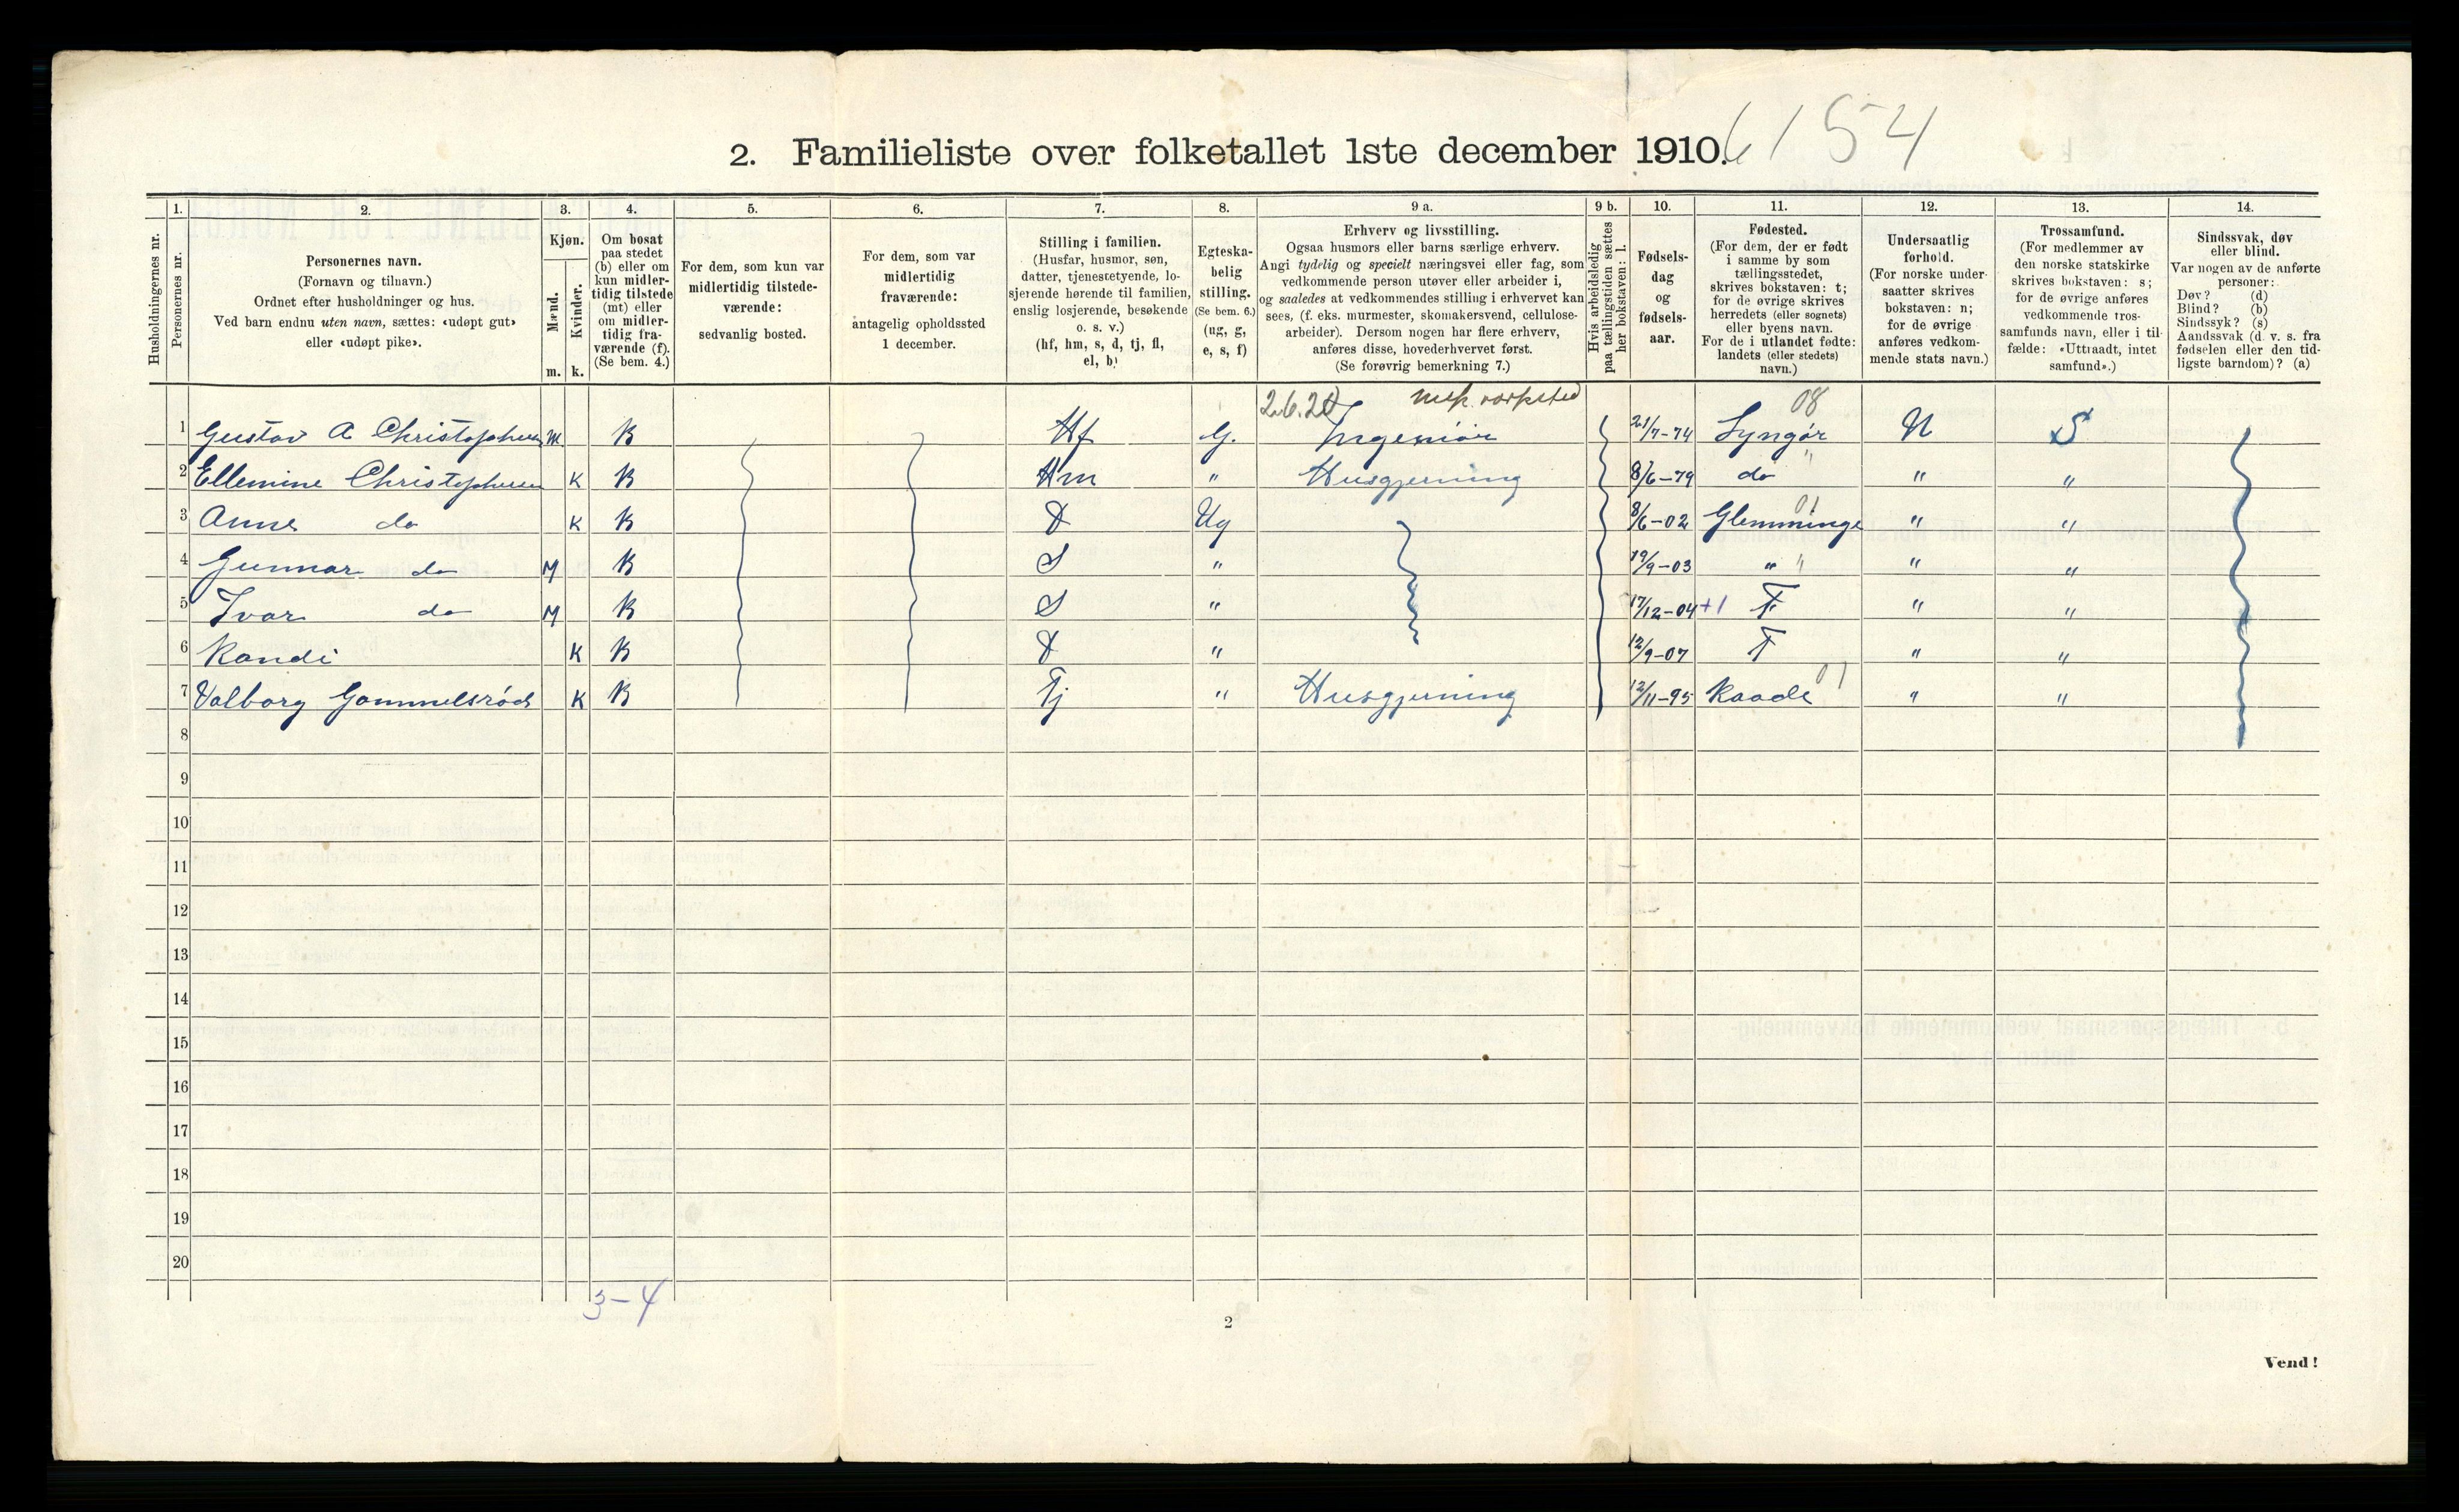 2. Familieliste over folketallet 1ste december 1910. 6154
1. 2. 3. 4. 5. 6. 7. 8. 9 a. 9 b. 10. 11. 12. 13. 14.
Husholdningernes nr.
Personernes nr.
Personernes navn.
(Fornavn og tilnavn.)
Ordnet efter husholdninger og hus.
Ved barn endnu uten navn, sættes: «udøpt gut»
eller «udøpt pike».
Kjøn.
Mænd.
Kvinder.
m. k.
Om bosat
paa stedet
(b) eller om
kun midler-
tidig tilstede
(mt) eller
om midler-
tidig fra-
værende (f).
(Se bem. 4.)
For dem, som kun var
midlertidig tilstede-
værende:
sedvanlig bosted.
For dem, som var
midlertidig
fraværende:
antagelig opholdssted
1 december.
Stilling i familien.
(Husfar, husmor, søn,
datter, tjenestetyende, lo-
sjerende hørende til familien,
enslig losjerende, besøkende
o. s. v.)
(hf, hm, s, d, tj, fl,
el, b)
Egteska-
belig
stilling.
(Se bem. 6.)
(ug, g,
e, s, f)
Erhverv og livsstilling.
Ogsaa husmors eller barns særlige erhverv.
Angi tydelig og specielt næringsvei eller fag, som
vedkommende person utøver eller arbeider i,
og saaledes at vedkommendes stilling i erhvervet kan
sees, (f. eks. murmester, skomakersvend, cellulose-
arbeider). Dersom nogen har flere erhverv,
anføres disse, hovederhvervet først.
(Se forøvrig bemerkning 7.)
Hvis arbeidsledig
paa tællingstiden sættes
her bokstaven: l.
Fødsels-
dag
og
fødsels-
aar.
Fødested.
(For dem, der er født
i samme by som
tællingsstedet,
skrives bokstaven: t;
for de øvrige skrives
herredets (eller sognets)
eller byens navn.
For de i utlandet fødte:
landets (eller stedets)
navn.)
Undersaatlig
forhold.
(For norske under-
saatter skrives
bokstaven: n;
for de øvrige
anføres vedkom-
mende stats navn.)
Trossamfund.
(For medlemmer av
den norske statskirke
skrives bokstaven: s;
for de øvrige anføres
vedkommende tros-
samfunds navn, eller i til-
fælde: «Uttraadt, intet
samfund».)
Sindssvak, døv
eller blind.
Var nogen av de anførte
personer:
Døv? (d)
Blind? (b)
Sindssyk? (s)
Aandssvak (d. v. s. fra
fødselen eller den tid-
ligste barndom)? (a)
2.6.20 mek. værksted 08
1 Gustav A Christophersen M B Hf G. Ingeniør 21/7-74 Lyngør N S
2 Ellemine Christophersen K B Hm " Husgjerning 8/6-79 do " " "
3 Anna do K B D Ug 8/6-02 Glemminge 01 " "
4 Gunnar do M B S " 19/9-03 " " " "
5 Ivar do M B S " 17/12-04 +1 T " "
6 Randi K B D " 12/9-07 T " "
7 Valborg Gammelsrød K B Tj " Husgjerning 12/11-95 Raade 01 " "
8
9
10
11
12
13
14
15
16
17
18
19
20
3-4
2
Vend!